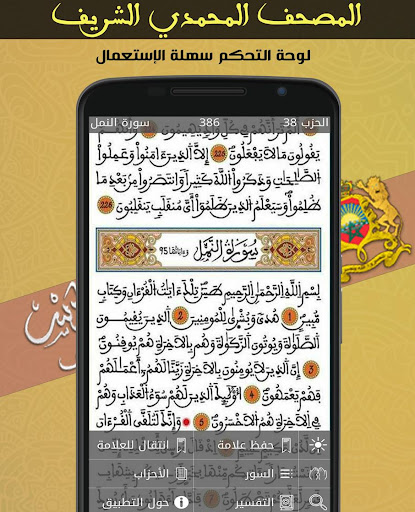 المصحف المحمدي الشريف
لوحة التحكم سهلة الإستعمال
الحزب 38 386 سورة النمل
يَقُولُونَ مَا لَا يَفْعَلُونَ 225 إِلَّا اَلذِينَ ءَامَنُواْ وَعَمِلُواْ
اُلصَّٰلِحَٰتِ وَذَكَرُواْ اُللَّهَ كَثِيراً وَانتَصَرُواْ مِنۢ بَعْدِ مَا
ظُلِمُواْ وَسَيَعْلَمُ اُلذِينَ ظَلَمُواْ أَيَّ مُنقَلَبٍ يَنقَلِبُونَ 226
سُورَةُ النَّمْلِ وءاياتها 95
بِسْمِ اِللَّهِ اِلرَّحْمَٰنِ اِلرَّحِيمِ طَسِٓ تِلْكَ ءَايَٰتُ اُلْقُرْءَانِ وَكِتَابٍ
مُّبِينٍ 1 هُدىً وَبُشْرَىٰ لِلْمُومِنِينَ 2 اَلذِينَ يُقِيمُونَ
اَلصَّلَوٰةَ وَيُوتُونَ اَلزَّكَوٰةَ وَهُم بِالَاخِرَةِ هُمْ يُوقِنُونَ
3 إِنَّ اَلذِينَ لَا يُومِنُونَ بِالَاخِرَةِ زَيَّنَّا لَهُمُۥٓ أَعْمَٰلَهُمْ
فَهُمْ يَعْمَهُونَ 4 أُوْلَٰٓئِكَ اَلذِينَ لَهُمْ سُوٓءُ اُلْعَذَابِ وَهُمْ
فِي اِلَاخِرَةِ هُمُ اُلَاخْسَرُونَ 5 وَإِنَّكَ لَتُلَقَّى اَلْقُرْءَانَ
حفظ علامة
انتقال للعلامة
السور
الأحزاب
التفسير
حول التطبيق